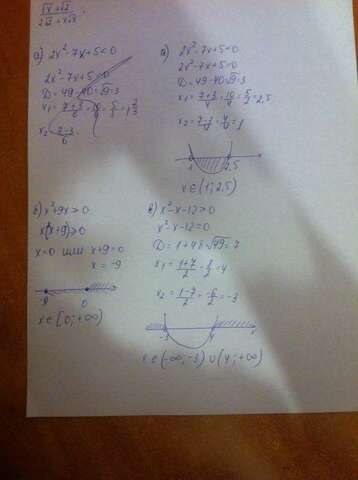 √x+√2
2√x+x√2
а) 2x²-7x+5<0
2x²-7x+5=0
D=49-40=√9=3
x₁=7+3/6=10/6=5/3=1 2/3
x₂=7-3/6
а) 2x²-7x+5<0
2x²-7x+5=0
D=49-40=√9=3
x₁=7+3/4=10/4=5/2=2,5
x₂=7-3/4=4/4=1
1 2,5
x∈(1;2,5)
б) x²+9x>0
x(x+9)>0
x=0 или x+9=0
x=-9
-9 0
x∈[0;+∞)
в) x²-x-12>0
x²-x-12=0
D=1+48=√49=7
x₁=1+7/2=8/2=4
x₂=1-7/2=-6/2=-3
-3 4 x
x∈(-∞;-3)∪(4;+∞)